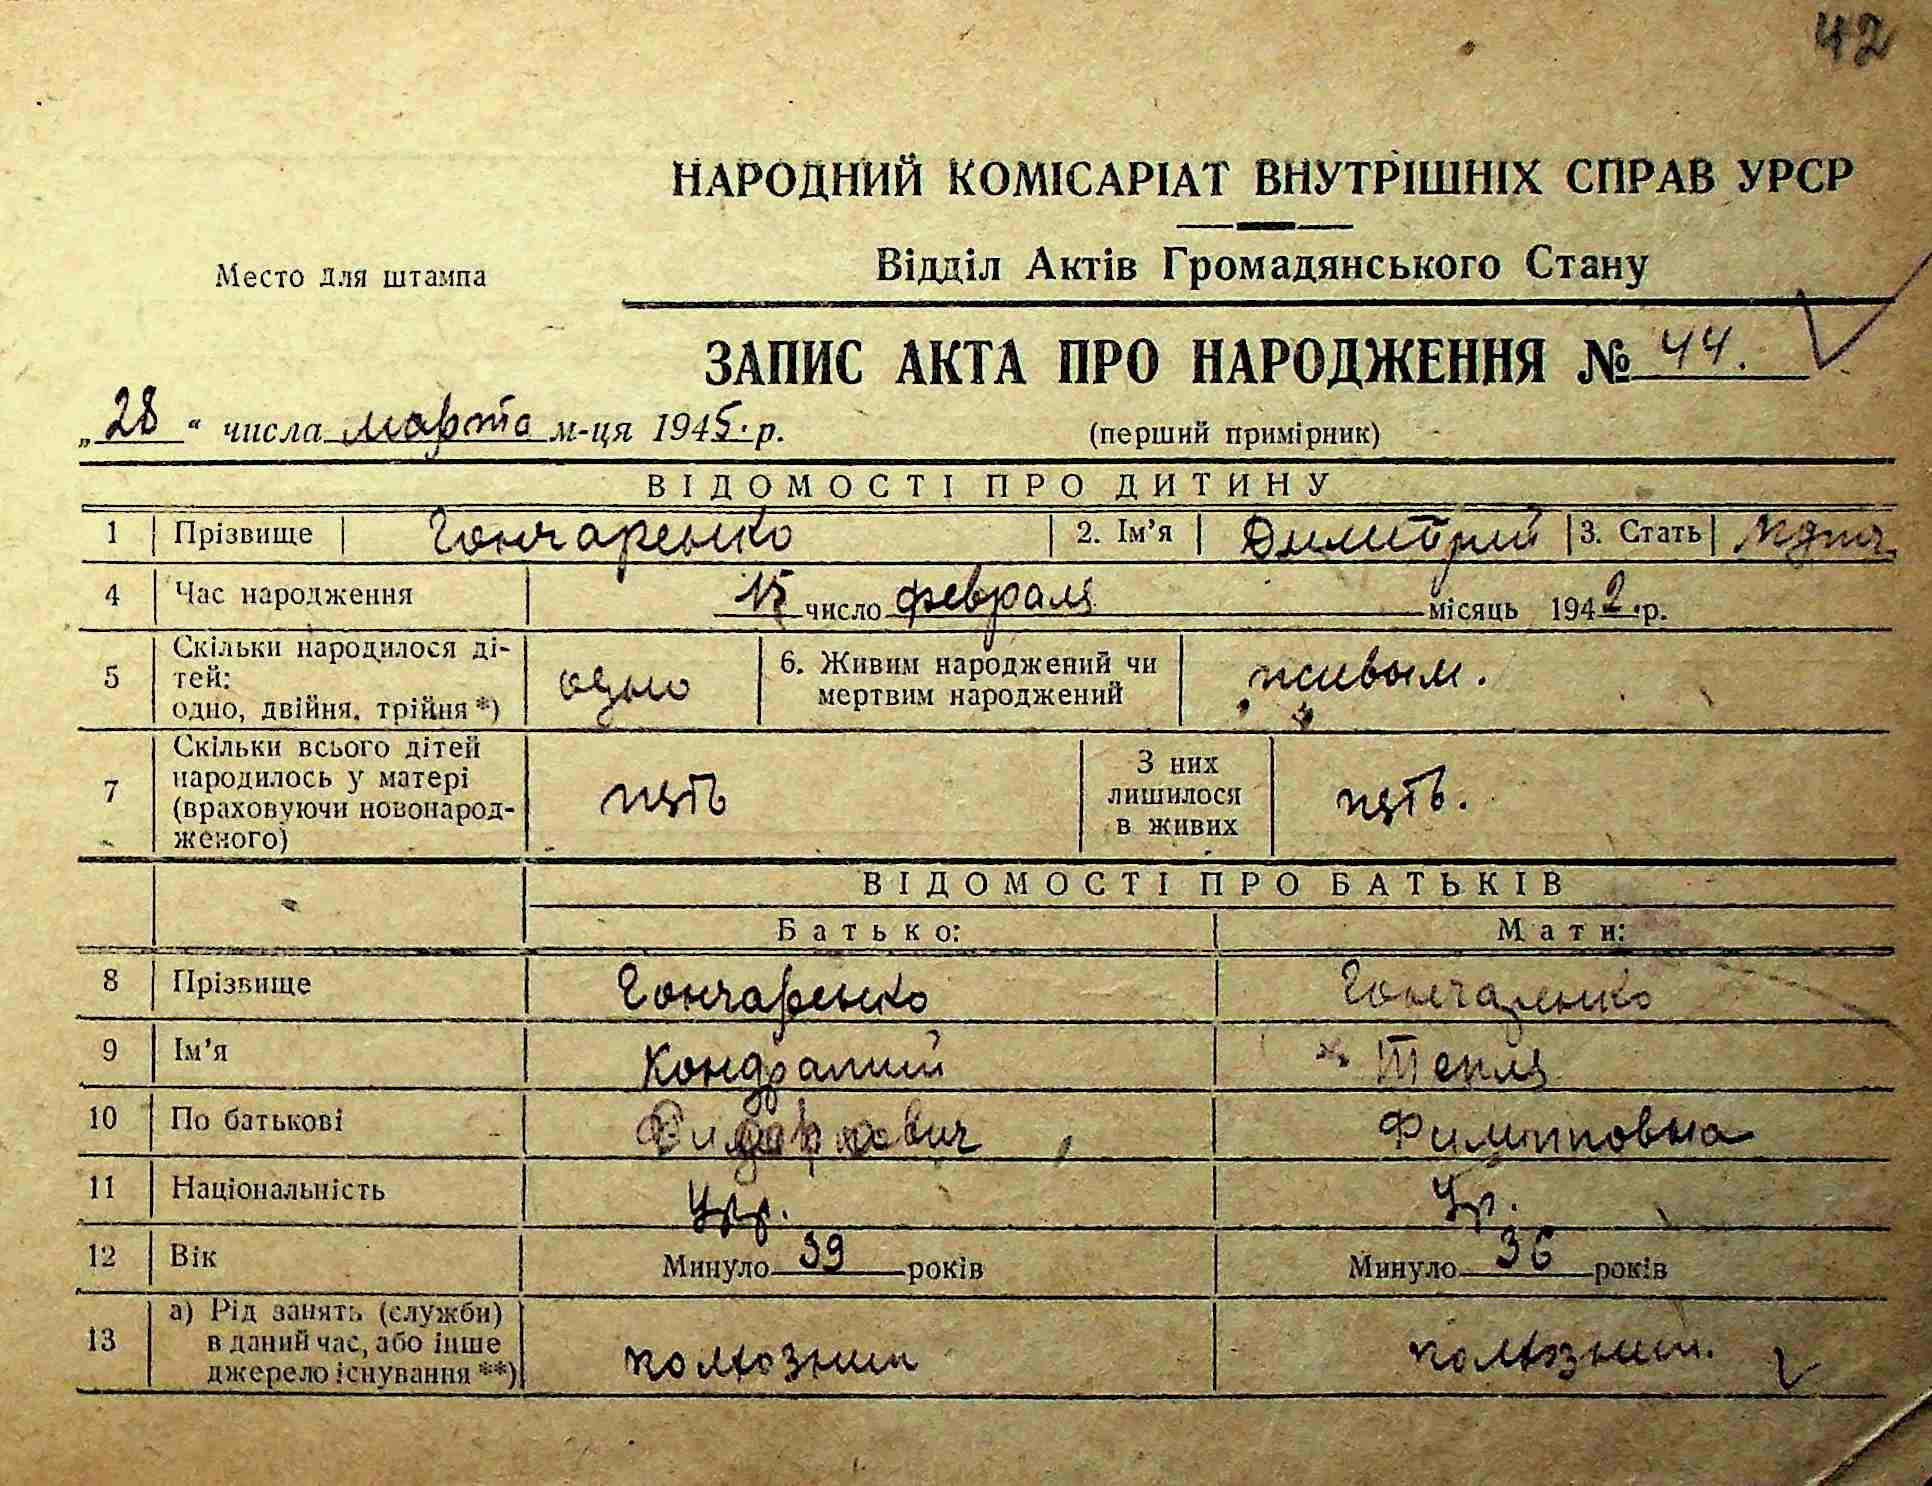 42
НАРОДНИЙ КОМІСАРІАТ ВНУТРІШНІХ СПРАВ УРСР
Відділ Актів Громадянського Стану
Место для штампа
ЗАПИС АКТА ПРО НАРОДЖЕННЯ № 44.
„28“ числа марта м-ця 1945 р.
(перший примірник)
ВІДОМОСТІ ПРО ДИТИНУ
1 Прізвище Гончаренко 2. Ім’я Димитрий 3. Стать
4 Час народження 15 число февраля місяць 1942 р.
5 Скільки народилося ді-
тей:
одно, двійня, трійня *)
одно
6. Живим народжений чи
мертвим народжений
живым.
7 Скільки всього дітей
народилось у матері
(враховуючи новонарод-
женого)
пять
З них
лишилося
в живих
пять.
ВІДОМОСТІ ПРО БАТЬКІВ
Батько: Мати:
8 Прізвище Гончаренко Гончаренко
9 Ім’я Кондратий Текля
10 По батькові Филипповна
11 Національність Укр. Ук.
12 Вік Минуло 39 років Минуло 36 років
13 а) Рід занять (служби)
в даний час, або інше
джерело існування **)
колхозник колхозниц.